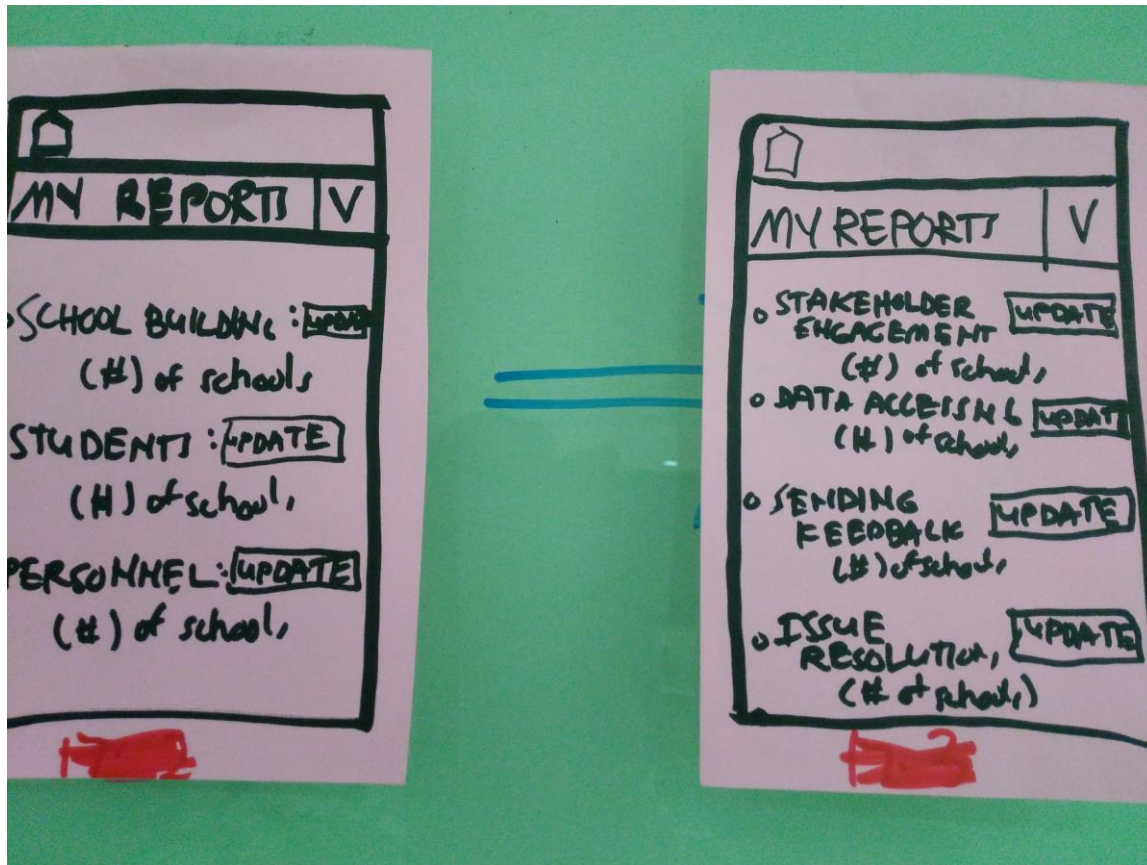 MY REPORTS V
SCHOOL BUILDING : UPDATE
(#) of schools
STUDENTS : UPDATE
(#) of schools
PERSONNEL : UPDATE
(#) of schools
MY REPORTS V
STAKEHOLDER UPDATE
ENGAGEMENT
(#) of schools
DATA ACCESSING UPDATE
(#) of schools
SENDING UPDATE
FEEDBACK
(#) of schools
ISSUE UPDATE
RESOLUTION,
(# of schools)